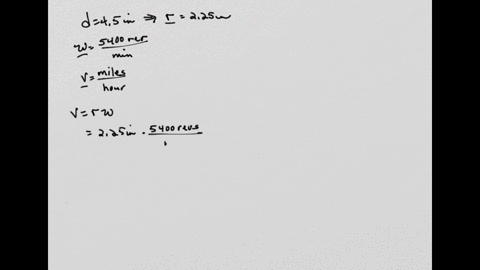 d=4.5in ⇒ r=2.25in
w= 5400 rev/min
v= miles/hour
V=rw
= 2.25in · 5400 revs/